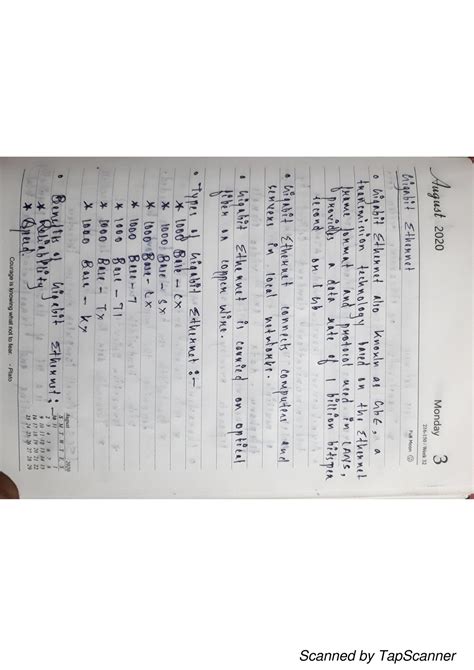 August 2020
Monday
3
216-150 / Week 32
Full Moon
Gigabit Ethernet
• Gigabit Ethernet also known as GbE, a
transmission technology based on the Ethernet
frame format and protocol used in LANs,
provides a data rate of 1 billion bitsper
second or 1 Gb
• Gigabit Ethernet connects computers and
servers in local networks.
• Gigabit Ethernet is carried on optical
fiber or copper wire.
• Types of Gigabit Ethernet :-
* 1000 Base - CX
* 1000 Base - SX
* 1000 Base - LX
* 1000 Base - T
* 1000 Base - T1
* 1000 Base - TX
* 1000 Base - KX
• Benefits of Gigabit Ethernet :-
* Reliability
* Speed
Courage is knowing what not to fear. - Plato
August 2020
S M T W T F S
Scanned by TapScanner